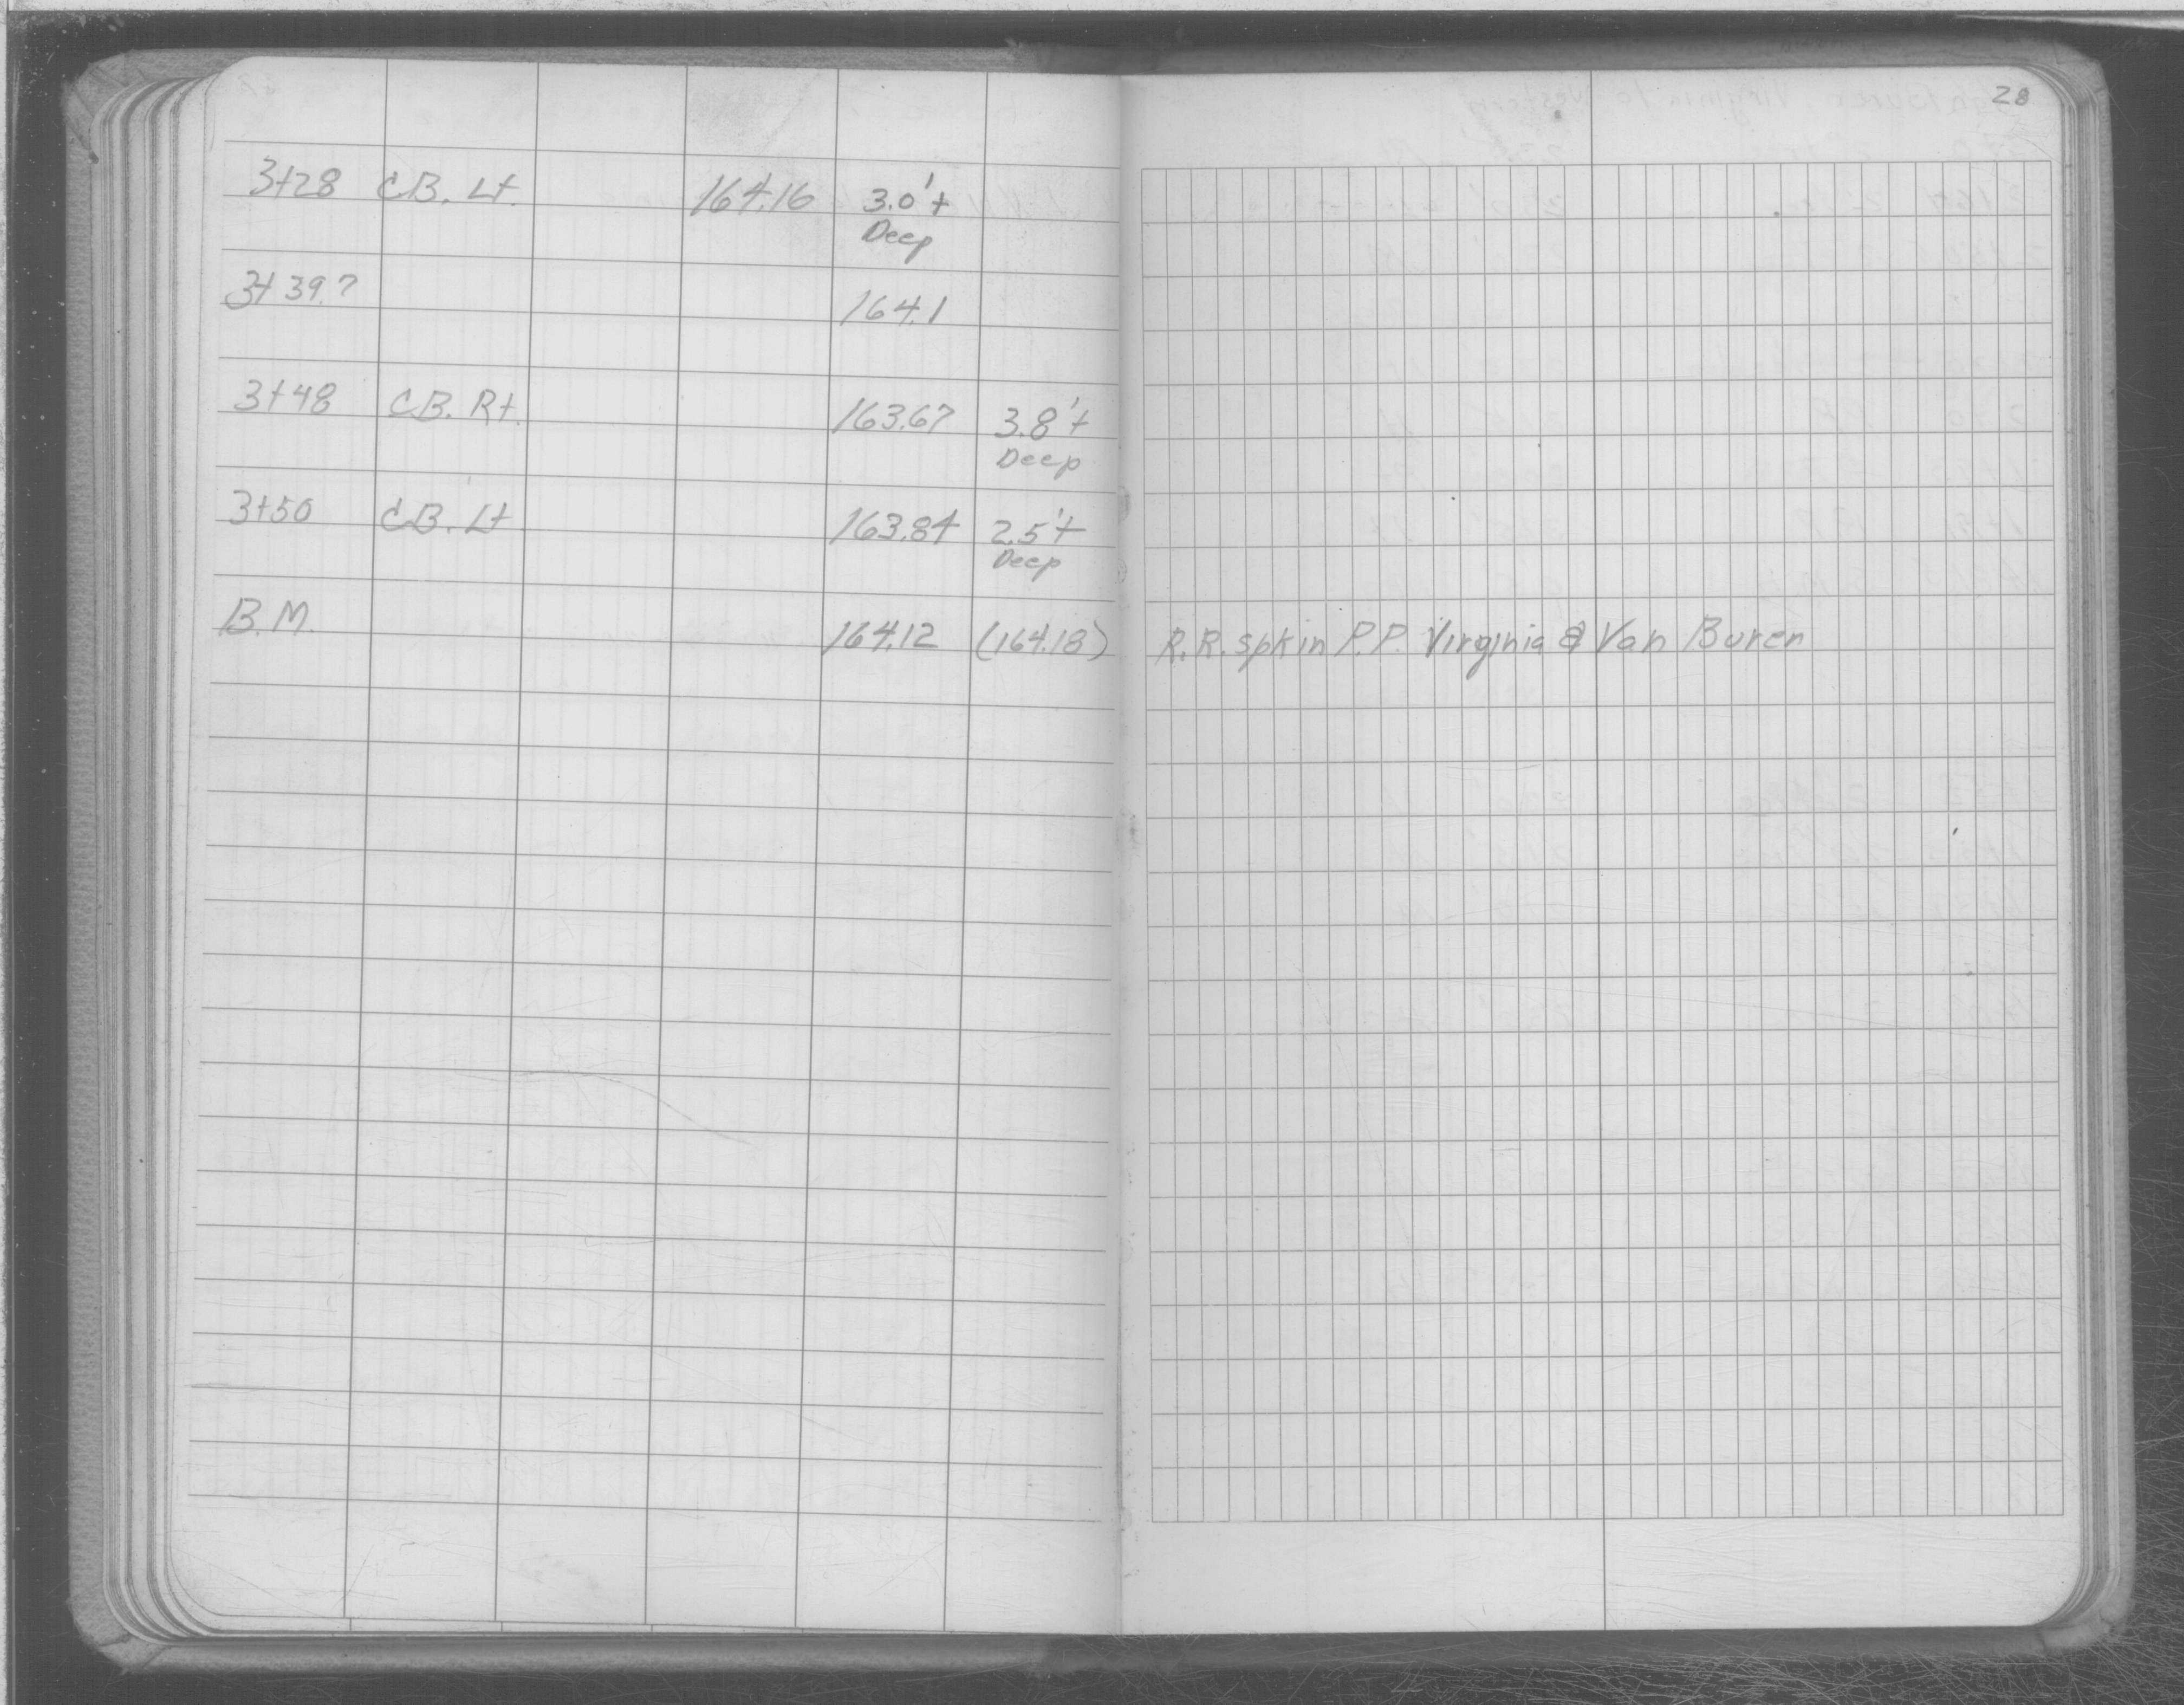 28
3+28 C.B. Lt. 164.16 3.0'±
Deep
3+39.7 164.1
3+48 C.B. Rt. 163.67 3.8'±
Deep
3+50 C.B. Lt 163.84 2.5'±
Deep
B.M. 164.12 (164.18) R.R. spk in P.P. Virginia & Van Buren